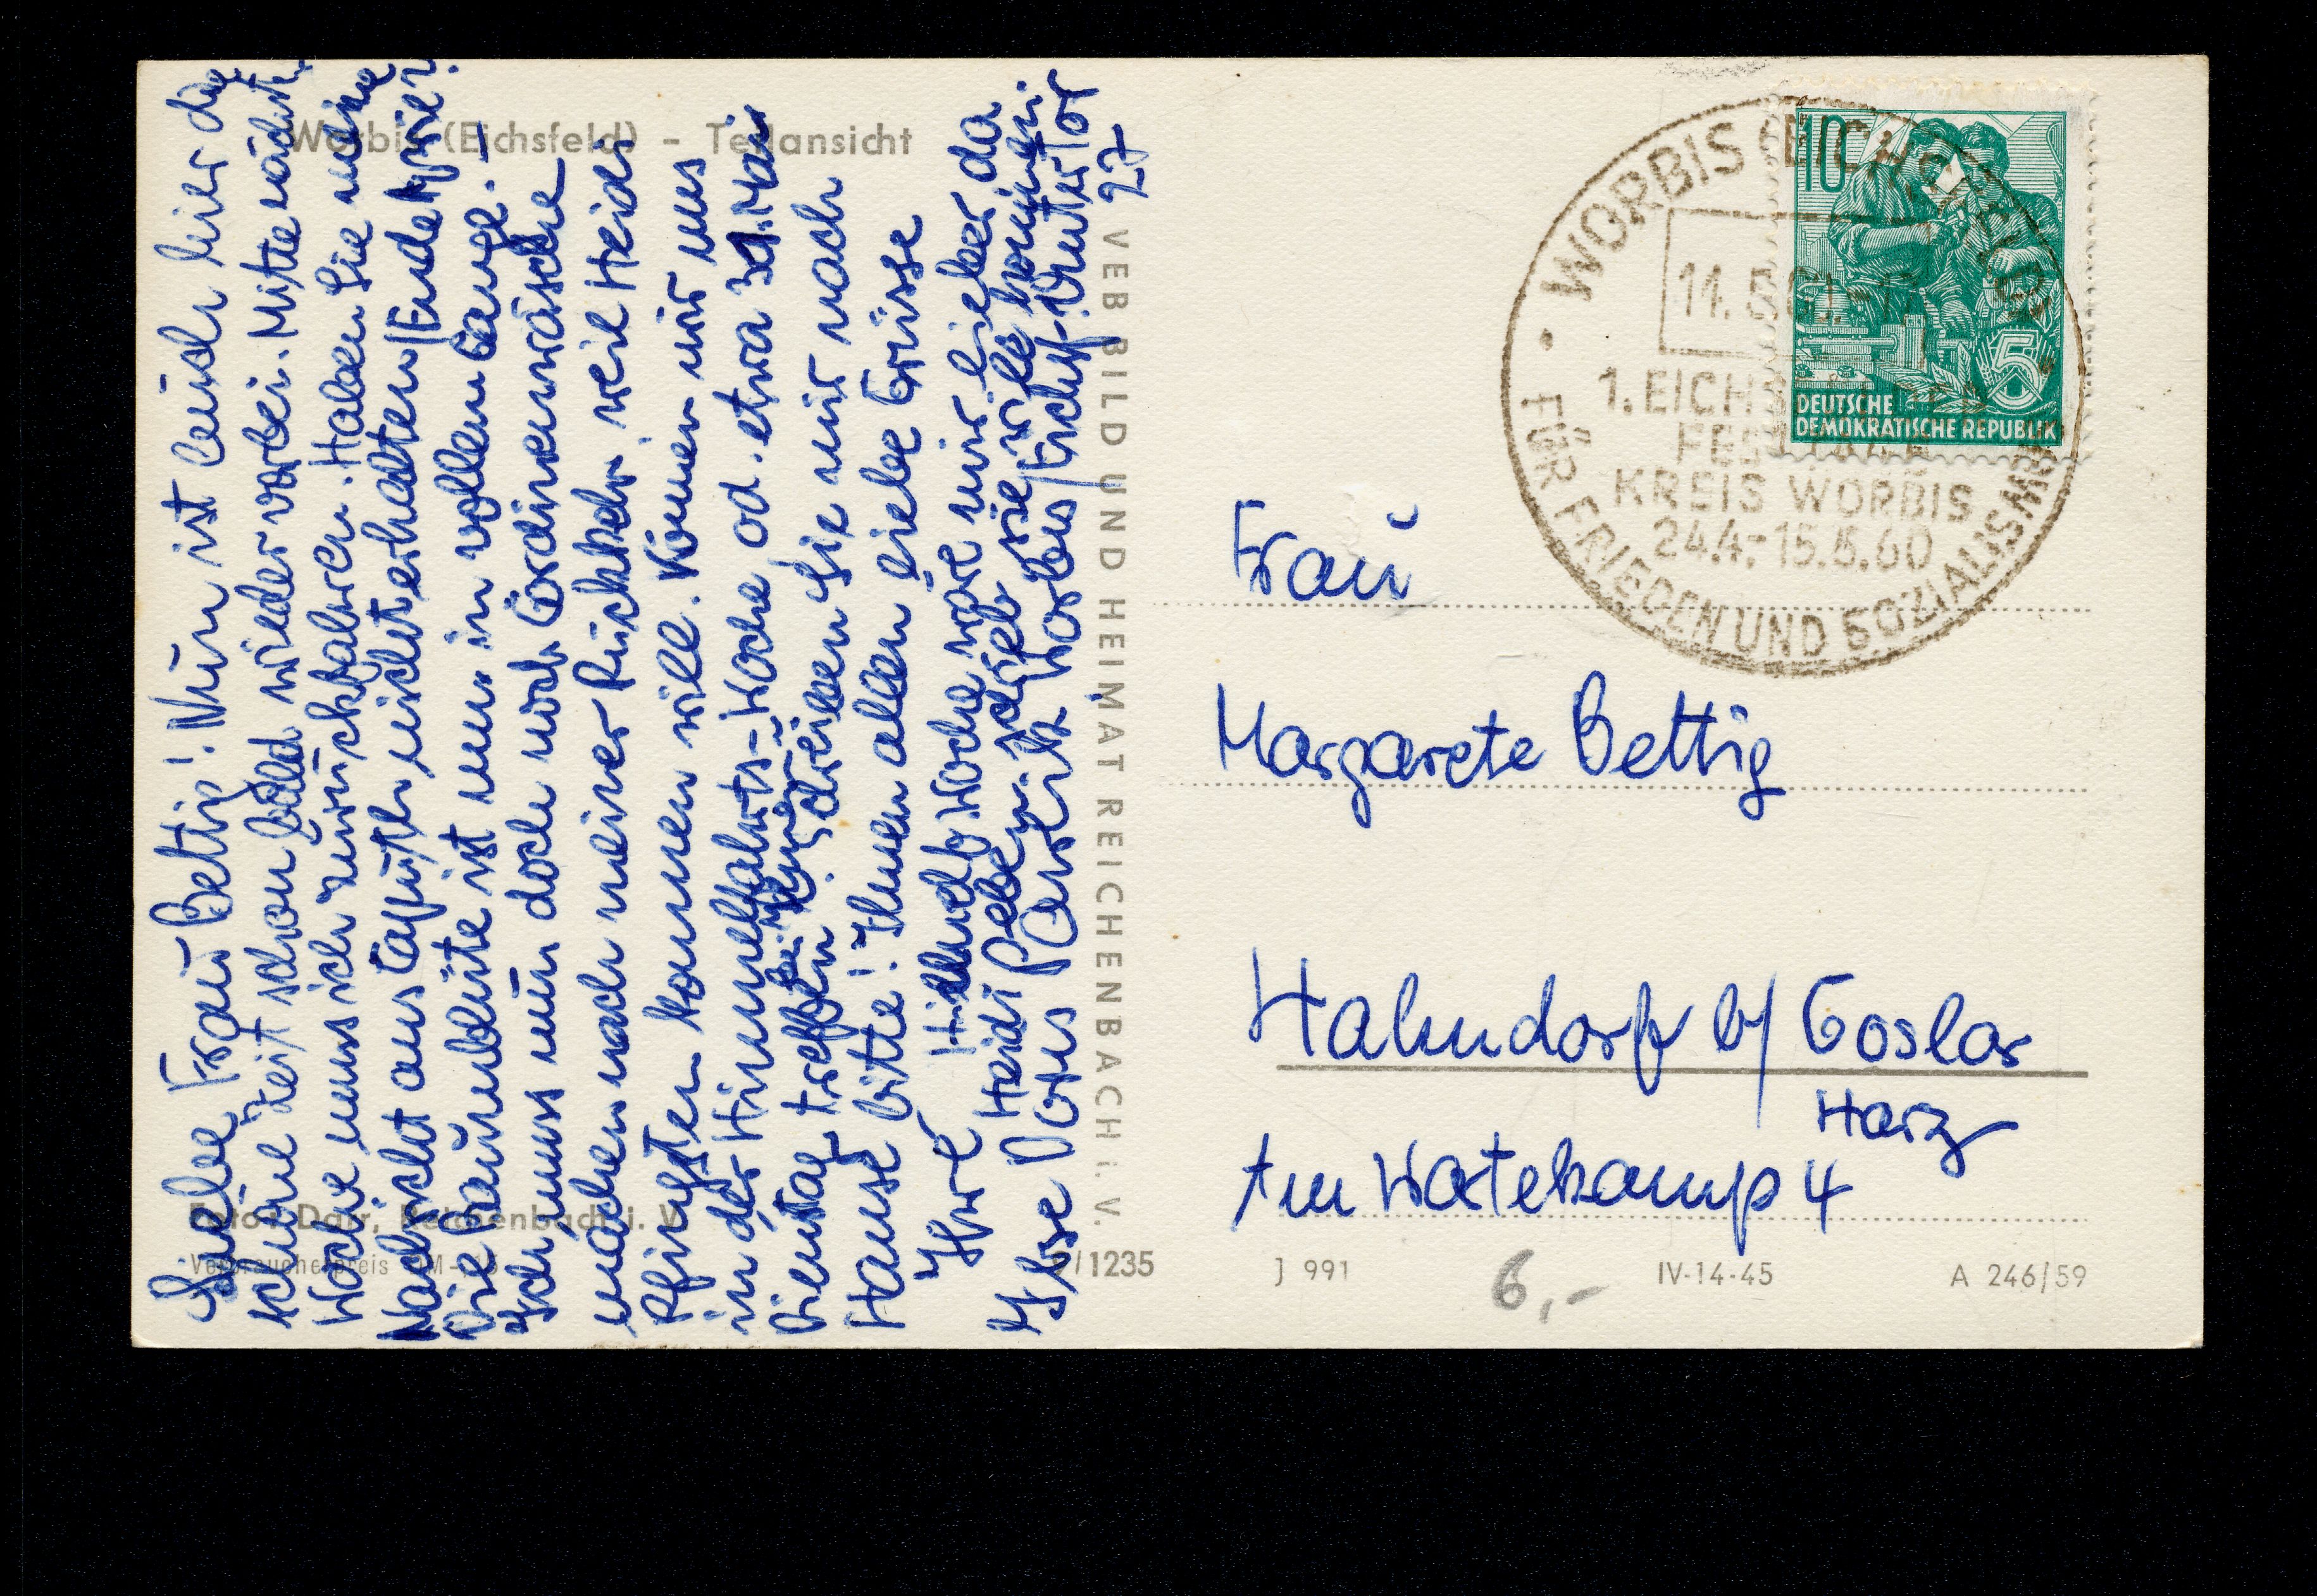 Worbis (Eichsfeld) - Teilansicht
Liebe Frau Bettig! Nun ist auch hier die
schöne Zeit schon bald wieder vorbei. Mitte nächst.
Woche muss ich zurückfahren. Haben Sie meine
Nachricht aus nicht erhalten/Ende April?
Die Baumblüte ist nun in vollem Gange. -
Ich muss nun doch noch Gardinenwäsche
machen nach meiner Rückkehr, weil Heidi
Pfingsten kommen will. Können wir uns
in der Himmelfahrts-Woche od. etwa 31. Mai
Dienstag treffen? Schreiben Sie mir nach
Hause bitte! Ihnen allen liebe Grüsse
Ihre
Woche wäre mir lieber da
Heidi schrieb sie kommen.
Ilse Worbis/Eichsf.
27
Foto: Darr, Reichenbach i. V.
Verbraucherpreis
/1235
VEB BILD UND HEIMAT REICHENBACH i. V.
WORBIS (EICHSFELD)
11.5.60
1. EICHSFELDER
FESTTAGE
KREIS WORBIS
24.4.-15.5.60
FÜR FRIEDEN UND SOZIALISMUS
10
5
DEUTSCHE
DEMOKRATISCHE REPUBLIK
Frau
Margarete Bettig
Hahndorf b/ Goslar
Harz
Am Wartekamp 4
J 991
6,-
IV-14-45
A 246/59